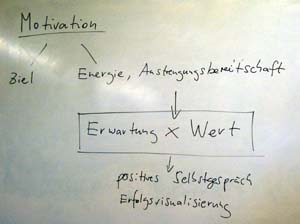 Motivation
Ziel
Energie, Anstrengungsbereitschaft
Erwartung x Wert
positives Selbstgespräch
Erfolgsvisualisierung